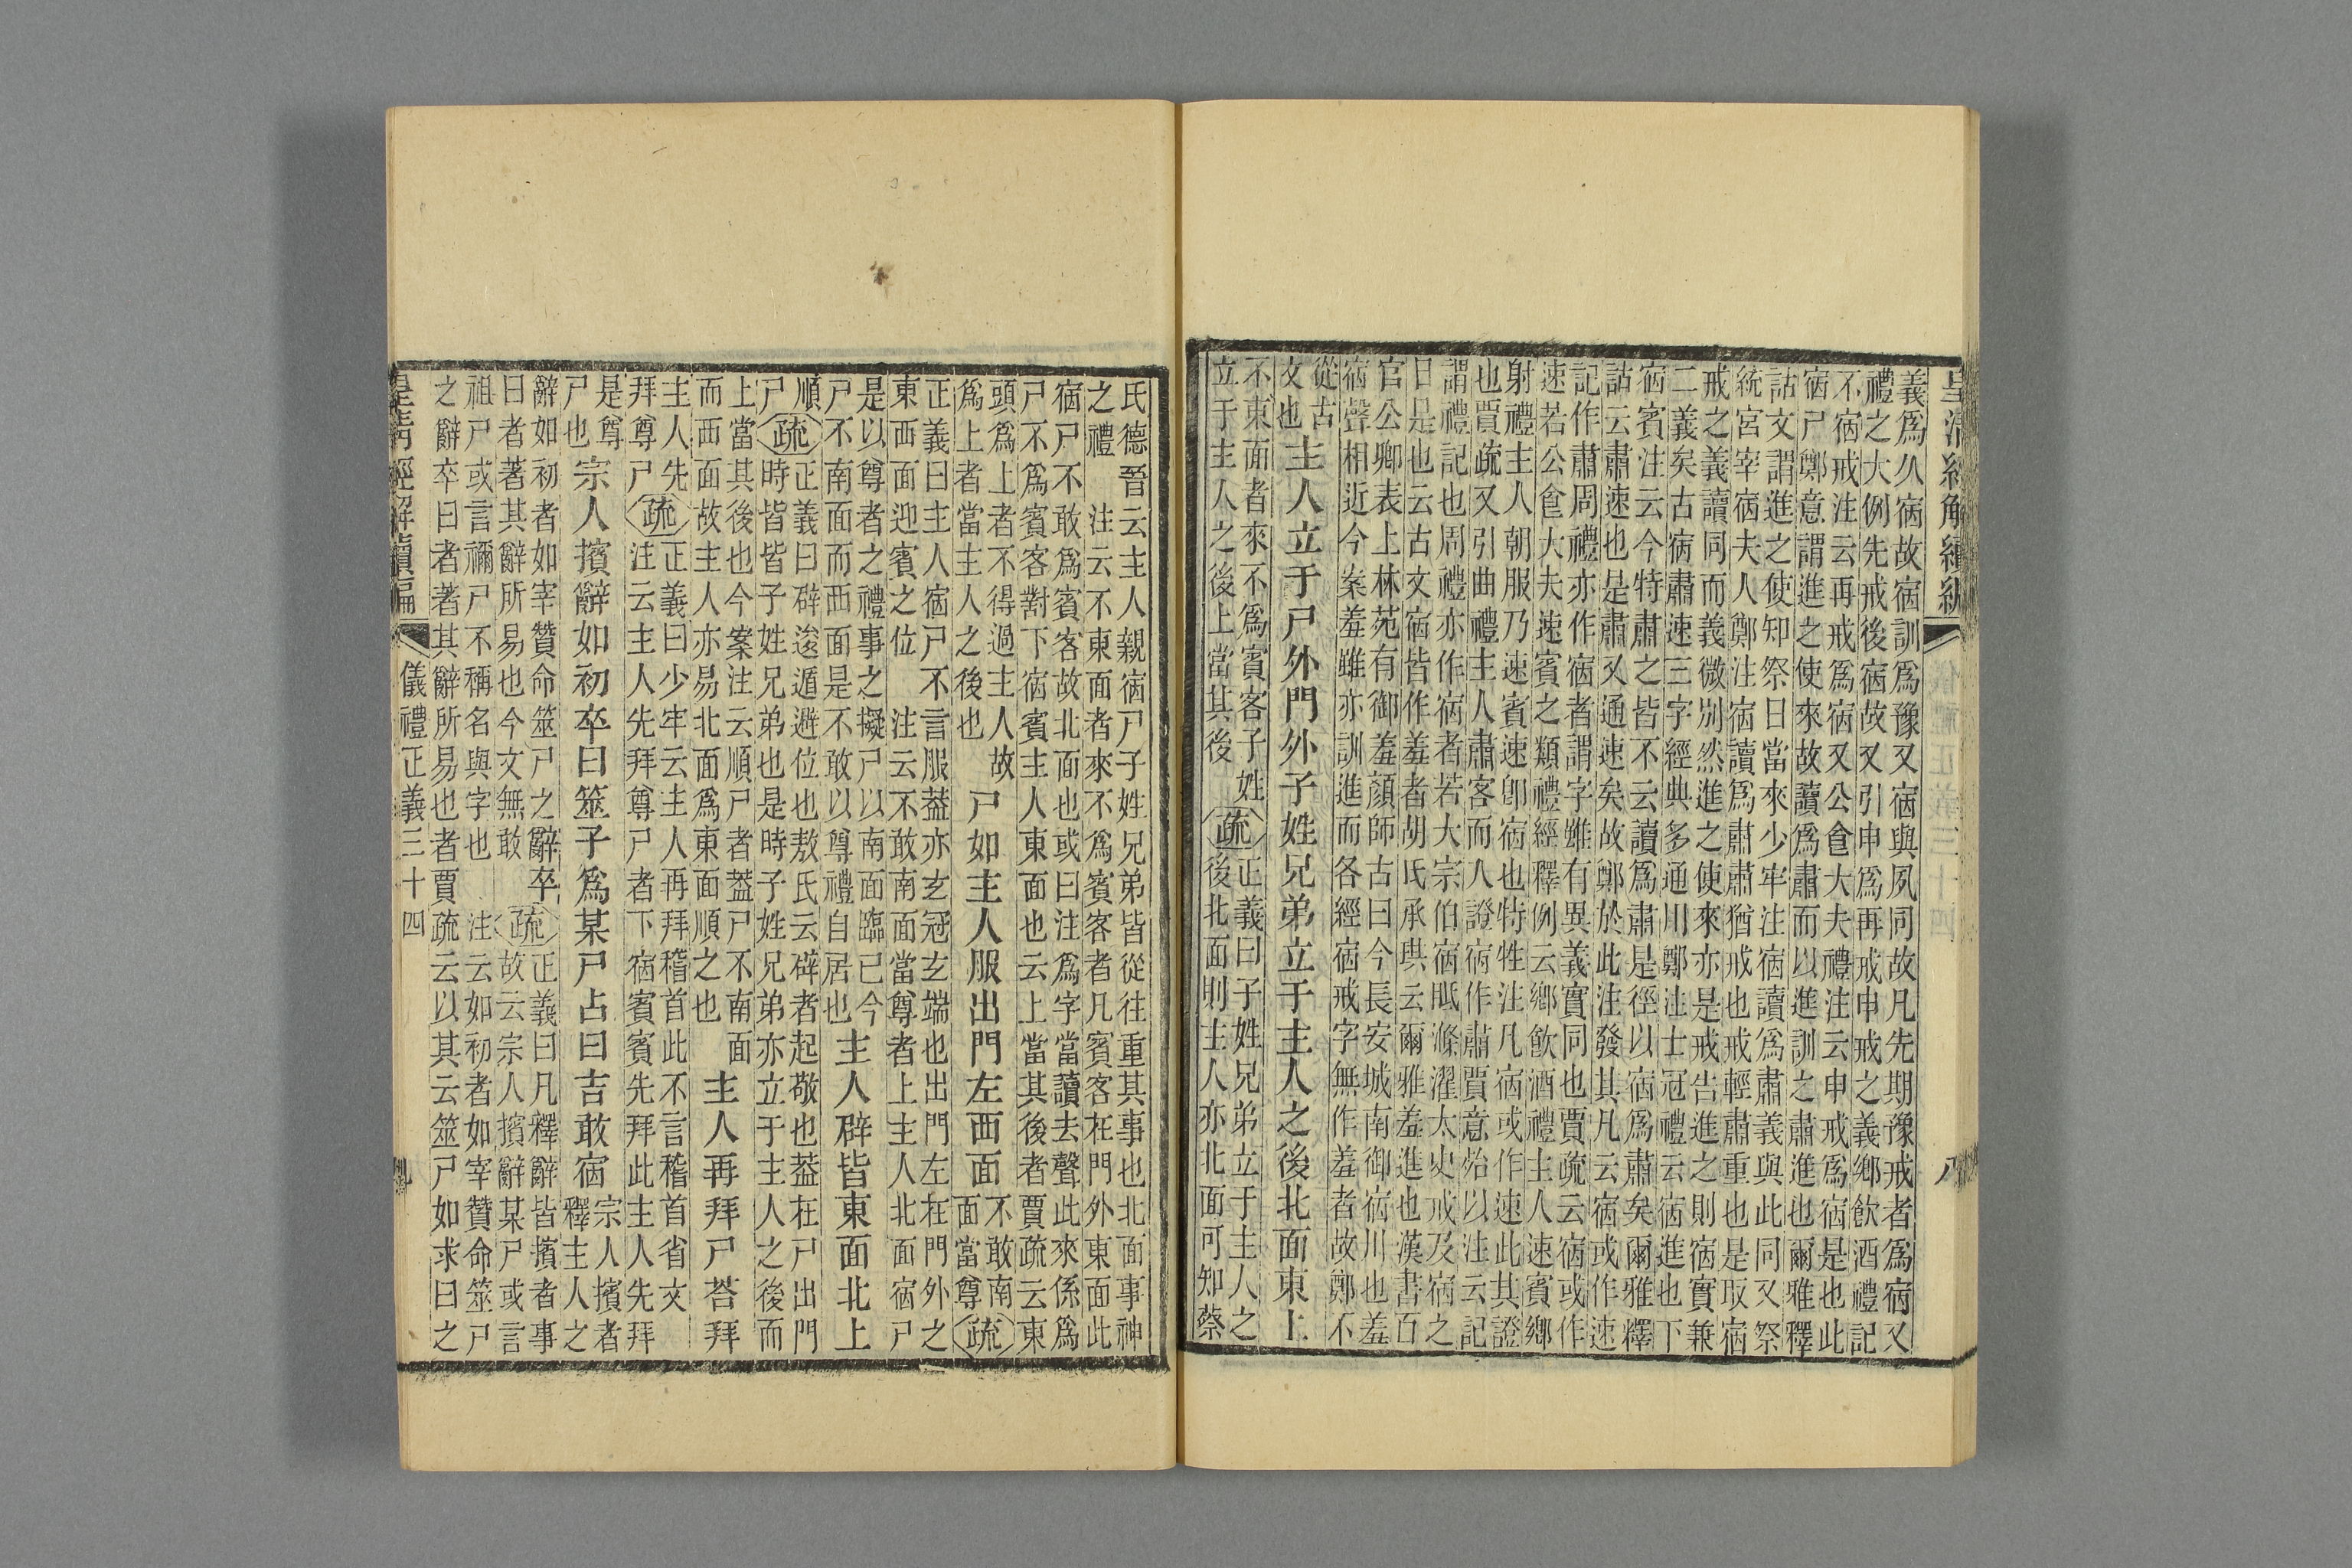 皇清經解續編
儀禮正義三十四
八
義爲久宿故宿訓爲豫又宿與夙同故凡先期豫戒者爲宿又
禮之大例先戒後宿故又引申爲再戒申戒之義鄉飮酒禮記
不宿戒注云再戒爲宿又公食大夫禮注云申戒爲宿是也此
宿尸鄭意謂進之使來故讀爲肅而以進訓之肅進也爾雅釋
詁文謂進之使知祭日當來少牢注宿讀爲肅義與此同又祭
統宮宰宿夫人鄭注宿讀爲肅肅猶戒也戒輕肅重也是取宿
戒之義讀同而義微別然進之使來亦是戒告進之則宿實兼
二義矣古宿肅速三字經典多通用鄭注士冠禮云宿進也下
宿賓注云今特肅之皆不云讀爲肅是徑以宿爲肅矣爾雅釋
詁云肅速也是肅又通速矣故鄭於此注發其凡云宿或作速
記作肅周禮亦作宿者謂字雖有異義實同也賈疏云宿或作
速若公食大夫速賓之類禮經釋例云鄉飮酒禮主人速賓鄉
射禮主人朝服乃速賓速卽宿也特牲注凡宿或作速此其證
也賈疏又引曲禮主人肅客而入證宿作肅賈意殆以注云記
謂禮記也周禮亦作宿者若大宗伯宿眂滌濯太史戒及宿之
日是也云古文宿皆作羞者胡氏承珙云爾雅羞進也漢書百
官公卿表上林苑有御羞顏師古曰今長安城南御宿川也羞
宿聲相近今案羞雖亦訓進而各經宿戒字無作羞者故鄭不
從古文也主人立于尸外門外子姓兄弟立于主人之後北面東上
不東面者來不爲賓客子姓立于主人之後上當其後疏正義曰子姓兄弟立于主人之後北面則主人亦北面可知蔡
氏德晉云主人親宿尸子姓兄弟皆從往重其事也北面事神
之禮 注云不東面者來不爲賓客者凡賓客在門外東面此
宿尸不敢爲賓客故北面也或曰注爲字當讀去聲此來係爲
尸不爲賓客對下宿賓主人東面也云上當其後者賈疏云東
頭爲上者不得過主人故爲上者當主人之後也尸如主人服出門左西面不敢南面當尊疏
正義曰主人宿尸不言服蓋亦玄冠玄端也出門左在門外之
東西面迎賓之位 注云不敢南面當尊者上主人北面宿尸
是以尊者之禮事之擬尸以南面臨己今尸不南面而西面是不敢以尊禮自居也主人辟皆東面北上
順尸疏正義曰辟逡遁避位也敖氏云辟者起敬也蓋在尸出門
時皆皆子姓兄弟也是時子姓兄弟亦立于主人之後而
上當其後也今案注云順尸者蓋尸不南面而西面故主人亦易北面爲東面順之也主人再拜尸荅拜
主人先拜尊尸疏正義曰少牢云主人再拜稽首此不言稽首省文
注云主人先拜尊尸者下宿賓賓先拜此主人先拜
是尊尸也宗人擯辭如初卒曰筮子爲某尸占曰吉敢宿宗人擯者釋主人之
辭如初者如宰贊命筮尸之辭卒曰者著其辭所易也今文無敢疏正義曰凡釋辭皆擯者事故云宗人擯辭某尸或言
祖尸或言禰尸不稱名與字也 注云如初者如宰贊命筮尸
之辭卒曰者著其辭所易也者賈疏云以其云筮尸如求曰之
皇淸經解續編
儀禮正義三十四
九